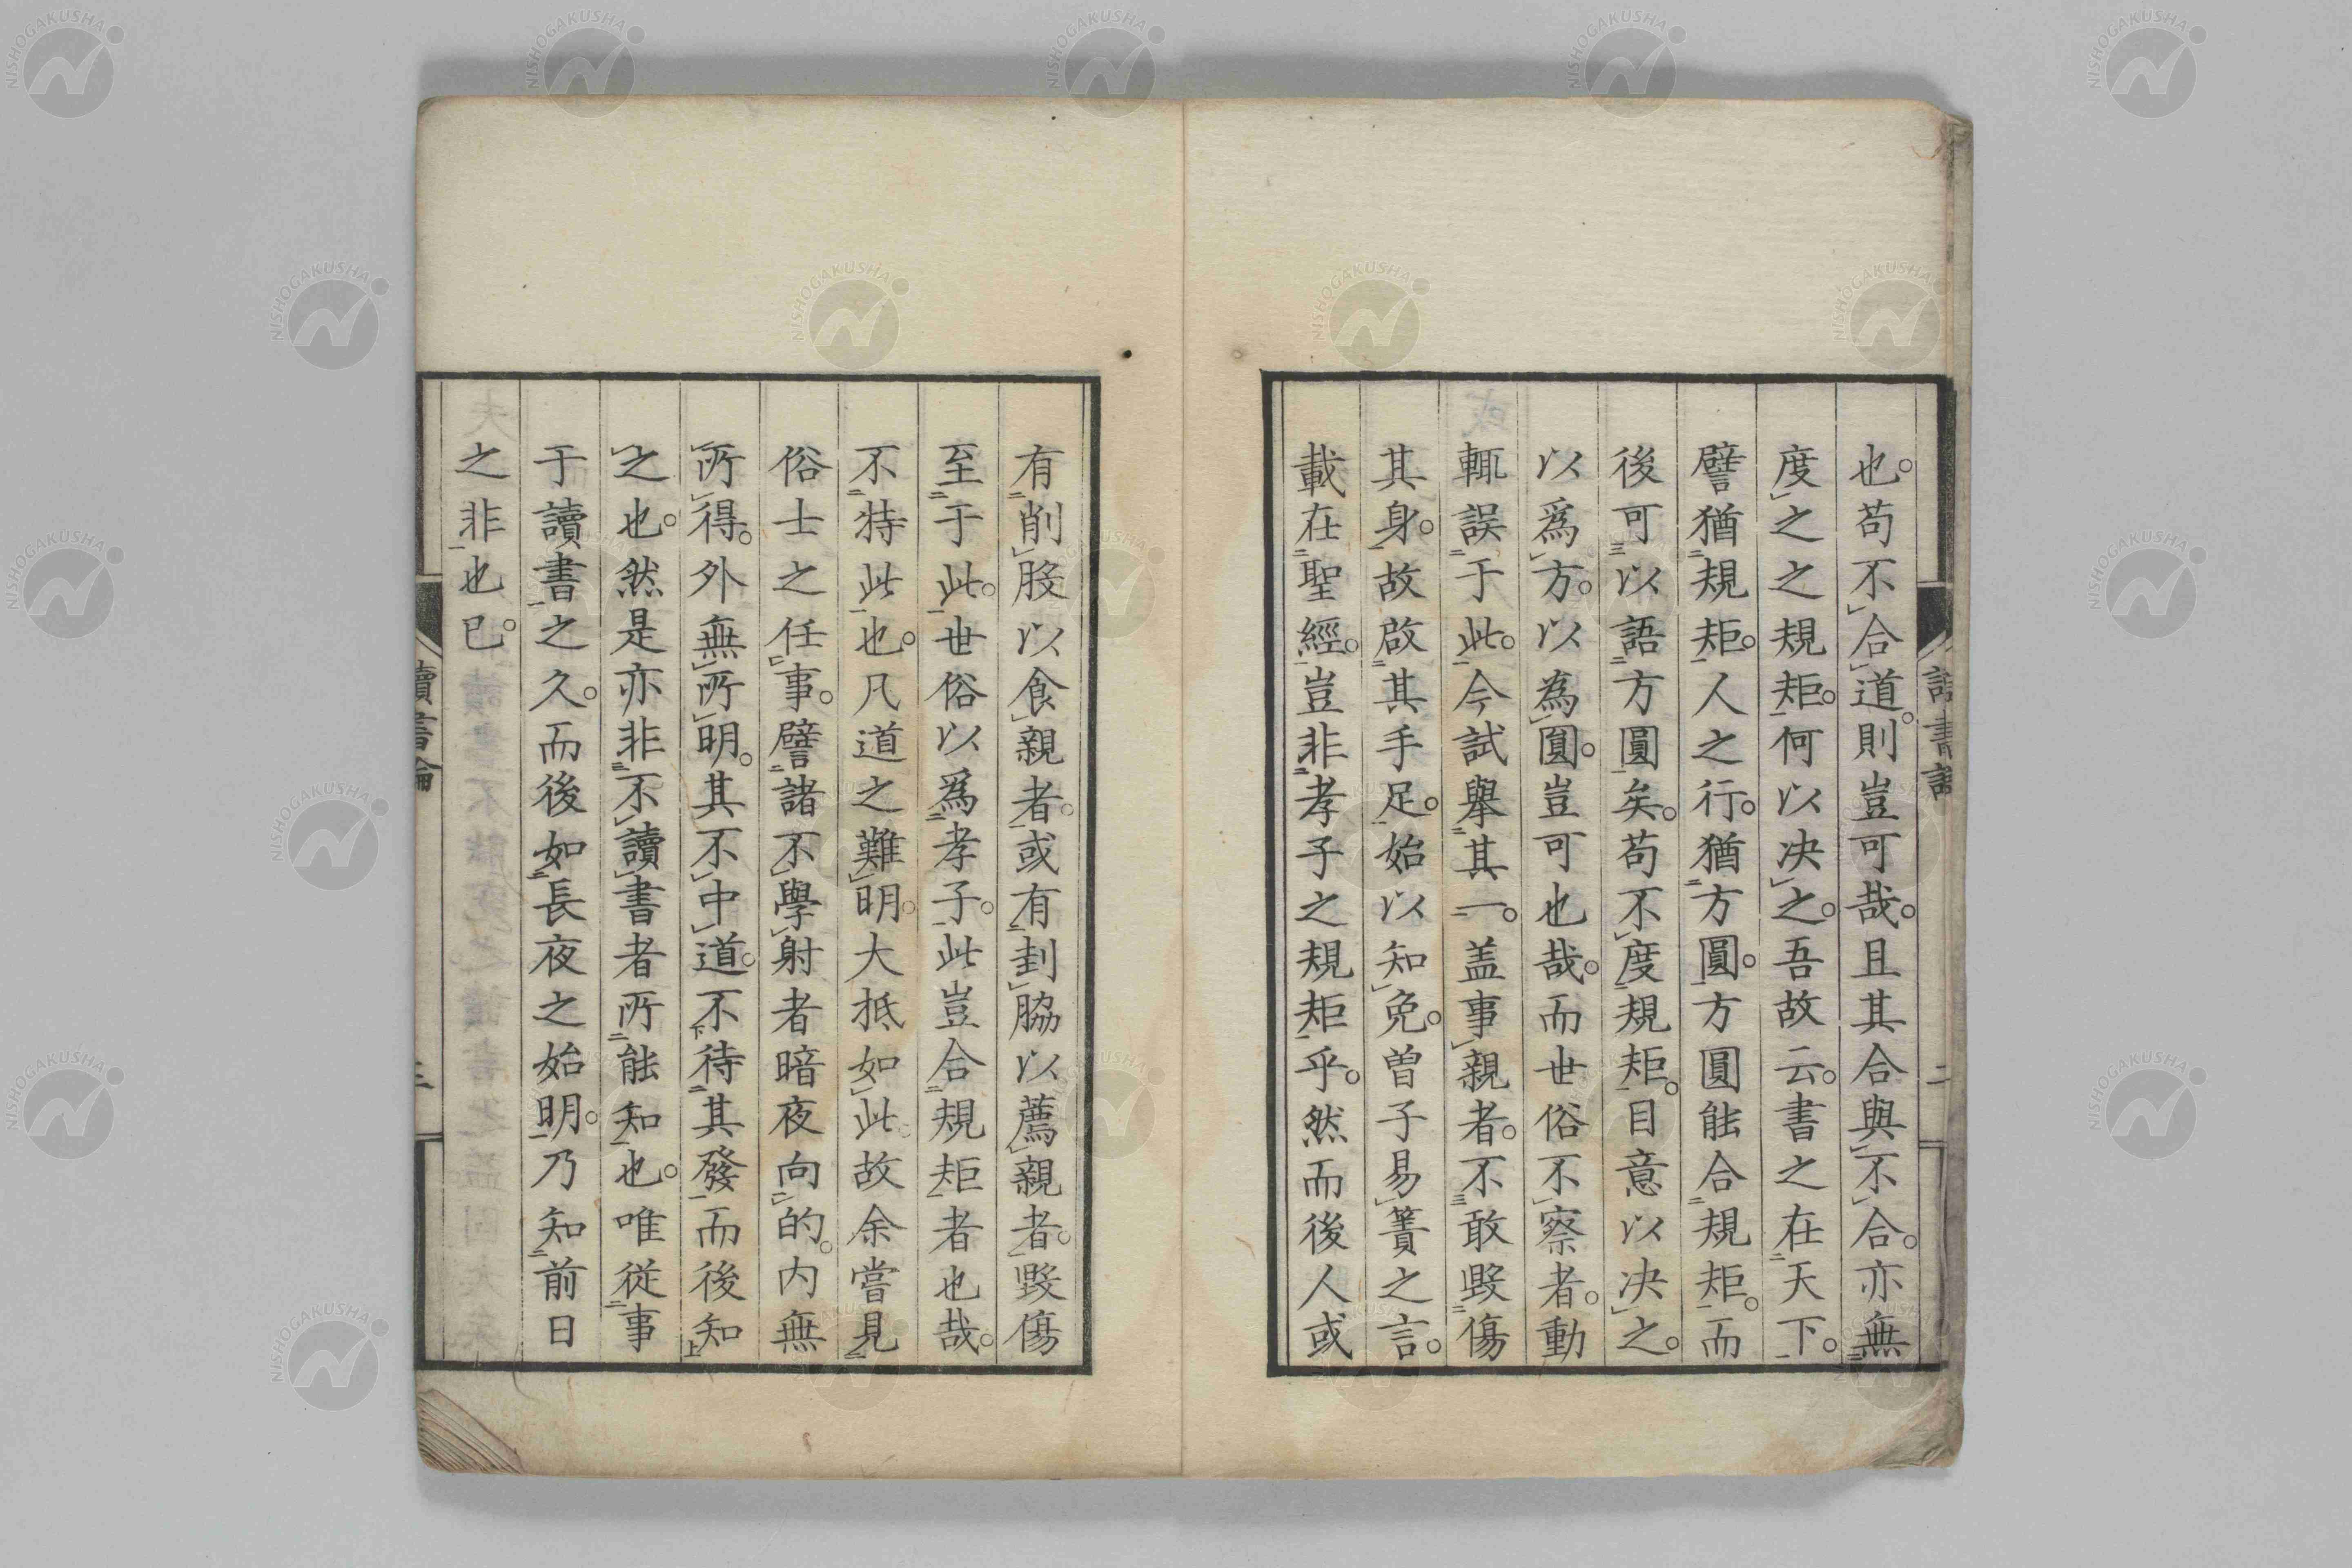 也。苟不合道。則豈可哉。且其合與不合。亦無
度之之規矩。何以决之。吾故云。書之在天下。
譬猶規矩。人之行。猶方圓。方圓能合規矩。而
後可以語方圓矣。苟不度規矩。目意以决之。
以爲方。以為圓。豈可也哉。而世俗不察者。動
輒誤于此。今試舉其一。盖事親者。不敢毀傷
其身。故啟其手足。始以知免。曽子易簀之言。
載在聖經。豈非孝子之規矩乎。然而後人或
有削股以食親者。或有刲脇以薦親者。毀傷
至于此。世俗以爲孝子。此豈合規矩者也哉。
不特此也。凡道之難明。大抵如此。故余嘗見
俗士之任事。譬諸不學射者暗夜向的。内無
所得。外無所明。其不中道。不待其發而後知
之也。然是亦非不讀書者所能知也。唯従事
于讀書之久。而後如長夜之始明。乃知前日
之非也已。
讀書論
二
NISHOGAKUSHA